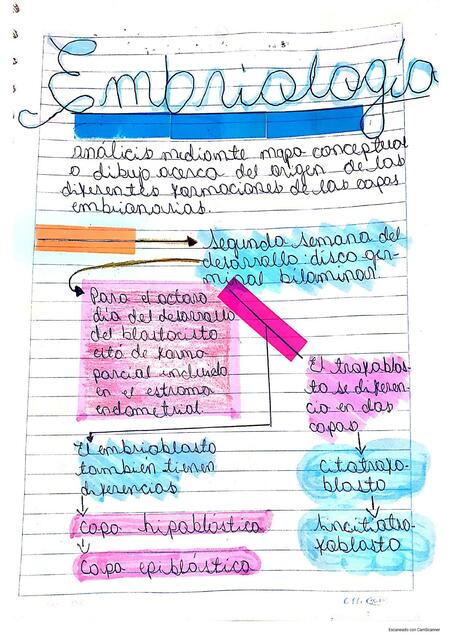 Embriología
Análicis mediante mapa conceptual
o dibujo acerca del origen de las
diferentes formaciones de las capas
embrionarias.
Segunda semana del
desarrollo: disco ger-
minal bilaminar
Para el octavo
día del desarrollo
del blastocisto
está de forma
parcial incluido
en el estroma
endometrial
El trofoblas-
to se diferen-
cia en dos
capas
El embrioblasto
también tienen
diferencias
Capa hipoblástica
Capa epiblástica
citotrofo-
blasto
Sincitiotro-
foblasto
Escaneado con CamScanner